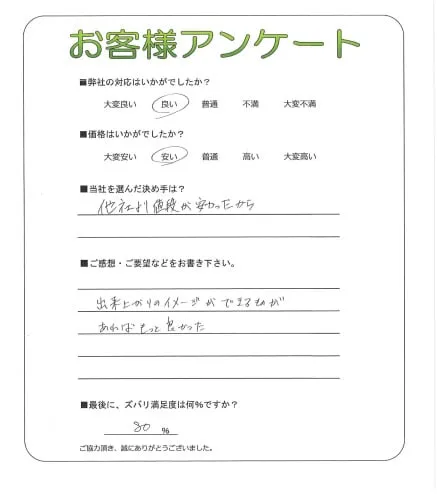 お客様アンケート
■弊社の対応はいかがでしたか？
大変良い 良い 普通 不満 大変不満
■価格はいかがでしたか？
大変安い 安い 普通 高い 大変高い
■当社を選んだ決め手は？
他社より値段が安かったから
■ご感想・ご要望などをお書き下さい。
出来上がりのイメージができるものが
あればもっと良かった
■最後に、ズバリ満足度は何%ですか？
80 %
ご協力頂き、誠にありがとうございました。